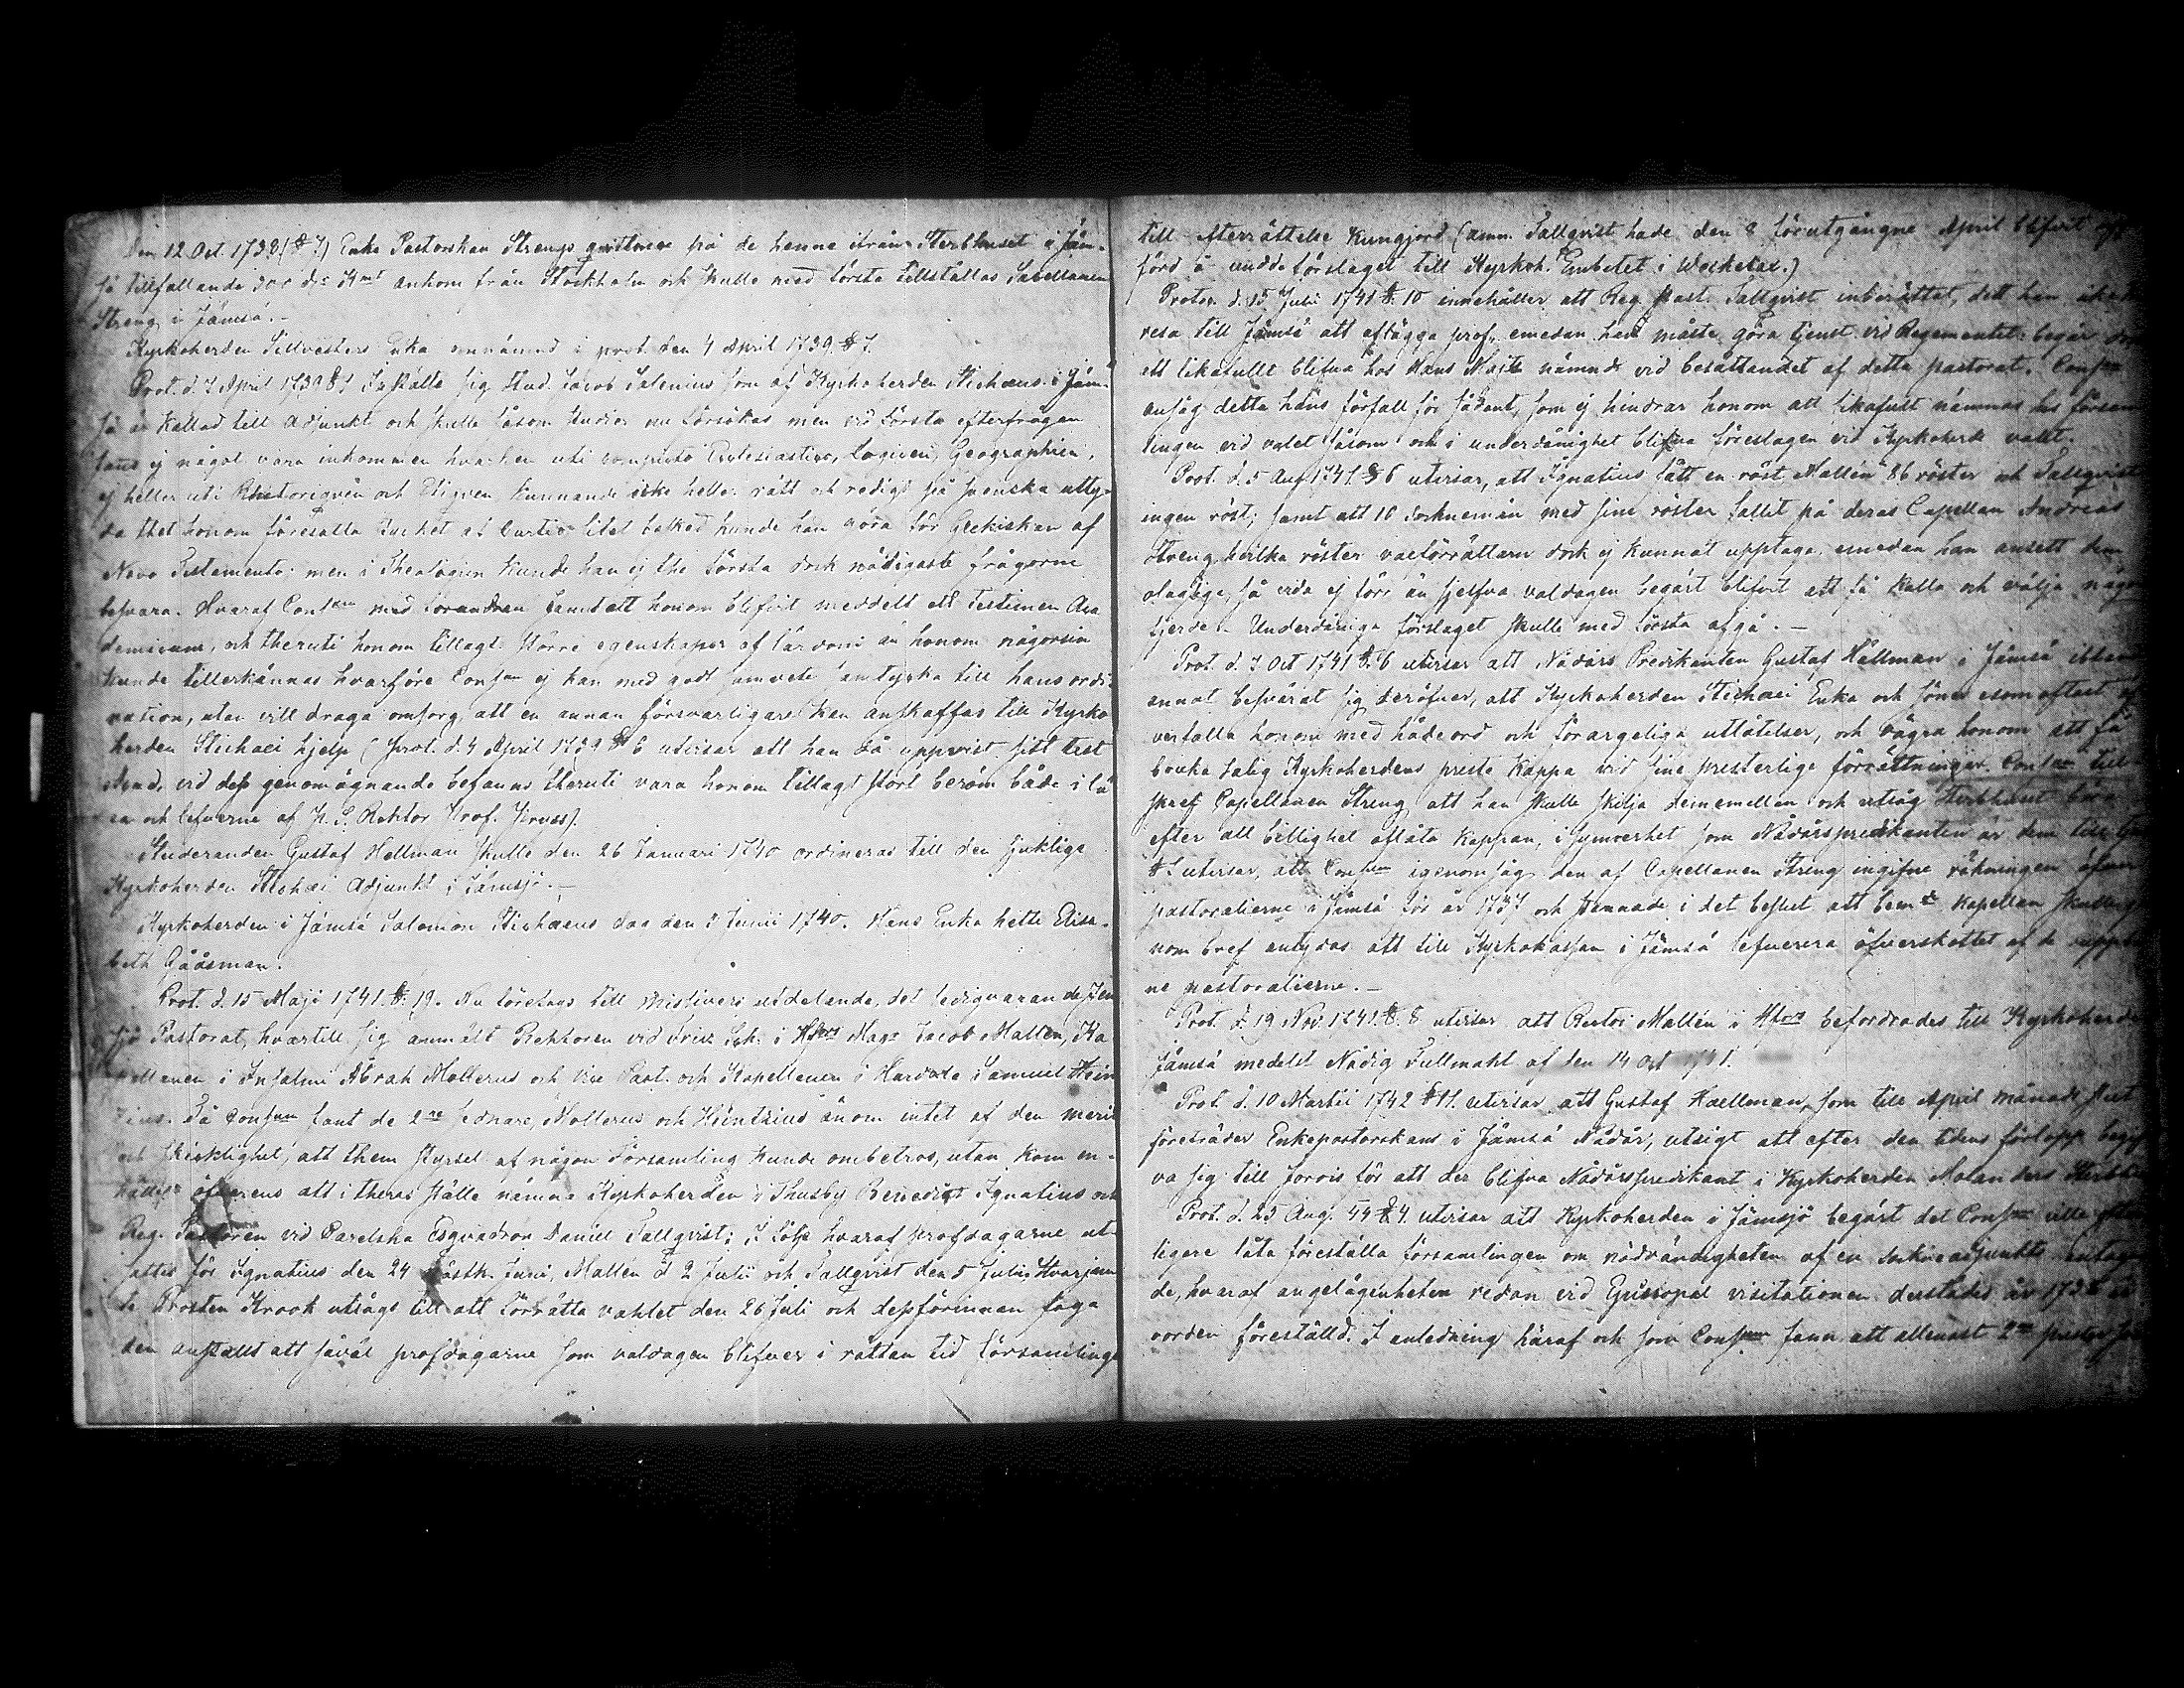 Den 12 Oct. 1738 (§ 7) Enka Pastorskan Strengs quittence på de henne ifrån Sterbhuset i Jäm-
sä tillfallande 300 dr Kmt ankom från Stockholm och skulle med första tillställas Capellanen
Streng i Jämsä.-
Kyrkoherden Sillvesters Enka omnämnd i prot. den 4 April 1739. § 7.
Prot. d. 7 April 1739 § 1 Inställte sig stud. Jacob Salenius som af Kyrkoherden Stichæus i Jäm-
sä är kallad till adjunkt och skulle såsom studios. nu försökas men vid första efterfrågan
fans ej något vara inkommen hvarken uti computo Ecclesiastico, Logicen, Geographien,
ej heller uti Rhetoriquen och Etiquen kunnande icke heller rätt och redigt på Svenska utty-
da thet honom föresatta stycket af Curtio litet bättre kunde han göra för Grekiskan af
Novo Testamento; men i Theologien kunde han ej the första och nödigaste frågorne
besvara. Hvaraf Consum med förundran samt att honom blifvit meddelt ett Testimon. Aca
demicum, och theruti honom tillagt större egenskaper af lärdom än honom någonsin
kunde tillerkännas hvarföre Consum ej kan med godt samvete samtycka till hans ordi-
nation, utan vill draga omsorg, att en annan försvarligare kan anskaffas till Kyrko
herden Stichæi hjelp (prot. d. 4 April 1739 § 6 utvisar att han då uppvist sitt test
vid dess genomögnande befanns theruti vara honom tillagt stort beröm både i lä
ra och lefverne af K. S. Rektor Prof.
Studeranden Gustaf Hellman skulle den 26 Januari 1740 ordineras till den sjuklige
Kyrkoherden Stichæi adjunkt i Jämsjö.-
Kyrkoherden i Jämsä Salomon Stichæus dog den 3 Junii 1740. Hans Enka hette Elisa-
beth Gååsman.
Prot. d. 15 Maji 1741. §. 19. Nu företogs till missivers utdelande, det ledigvarande Jem
sjö Pastorat, hvartill sig anmält Rektoren vid Triv. Sch. i Hfors Mag. Jacob Mallen, Ka
pellanen i Idsalmi Abrah. Mollerus och Vice Past. och Kapellanen i Hardola Samuel Hein
zius. Då Consum fant de 2ne sednare, Mollerus och Heintzius ännu intet af den merit
och skicklighet, att them styrsel af någon Församling kunde ombetros, utan kom en-
hälligt öfverens att i theras ställe nämna Kyrkoherden i Thusby Benedict Ignatius och
Reg. Pastoren vid Carelska Esquadron Daniel Tallqvist; I följe hvaraf profdagarne ut-
sattes för Ignatius den 24 nästk. Juni, Mallen d 2 Julii och Tallqvist den 5 Julii, Hvarjem
te Prosten Krook utsågs till att förrätta vahlet den 26 Juli och dessförinnan foga
den anstalt att såväl profdagarne som valdagen blifver i rättan tid församlinge
till efterrättelse kungjord (anm. Tallqvist hade den 8 förutgångne April blifvit upp
förd å undd. förslaget till Kyrkoh. Embetet i Weckelax.)
Protoc. d. 15 Julii 1741. §. 10 innehåller att Reg. Past. Tallqvist inberättat, det han icke
resa till Jämsä att aflägga prof, emedan han måste göra tjenst vid Regementet: begär
att likafullt blifva hos Hans Majt nämnd vid besättandet af detta pastorat. Consum
ansåg detta hans förfall för sådant, som ej hindrar honom att likafullt nämnas hos försam
lingen vid valet såsom och i underdånighet blifva föreslagen vid Kyrkoherde valet.
Prot. d. 5 Aug 1741. § 6 utvisar, att Ignatius fått en röst Mallén 86 röster och Tallqvist
ingen röst; samt att 10 Socknemän med sine röster fallit på deras Capellan Andreas
Streng, hvilka röster valförrättaren dock ej kunnat upptaga, emedan han ansett dem
olaglige, så vida ej förr än sjelfva valdagen begärt blifvit att få kalla och välja någon
fjerde. Underdåniga förslaget skulle med första afgå. -
Prot. d. 7 Oct 1741 §. 6 utvisar att Nådårs Predikanten Gustaf Hällman i Jämsä ibland
annat besvärat sig deröfver, att Kyrkoherden Stichæi Enka och söner esomoftast öf
verfalla honom med hådeord och förargeliga utlåtelser, och vägra honom att få
bruka Salig Kyrkoherdens preste kappa vid sine presterlige förrättningar. Consum till-
skref Capellanen Streng att han skulle skilja deinemellan och utsåg Sterbhuset för
efter all billighet aflåta kappan, i synnerhet som Nådårspredikanten är dem till
§. utvisar, att Consum igenomsåg den af Capellanen Streng ingifne räkningen öfver
pastoralierne i Jämsä för år 1737 och stannade i det beslut att bemte Kapellan skulle
nom bref antydas att till Kyrkokassan i Jämsä lefverera öfverskottet af de uppb
ne pastoralierne. -
Prot. d. 19 Nov. 1741. §. 8 utvisar att Rector Mallén i Hfors befordrades till Kyrkoherde
Jämsä medelst Nådig Fullmakt af den 14 Oct 1741.
Prot. d. 10 Martii 1742 § 11. utvisar att Gustaf Haellman, som till April månads slut
företräder Enkepastorskans i Jämsä Nådår, utsigt att efter den tidens förlopp begif
va sig till Jorois för att der blifva Nådårspredikant i Kyrkoherden Molanders Sterbh
Prot. d. 25 Aug. 44 § 4. utvisar att Kyrkoherden i Jämsjö begärt det Consum ville
ligere låta föreställa församlingen om nödvändigheten af en Sockneadjunkts antagan
de, hvaraf angelägenheten redan vid Episcopal visitationen derstädes år är
vorden föreställd. I anledning häraf och som Consum fann att allenast 2ne